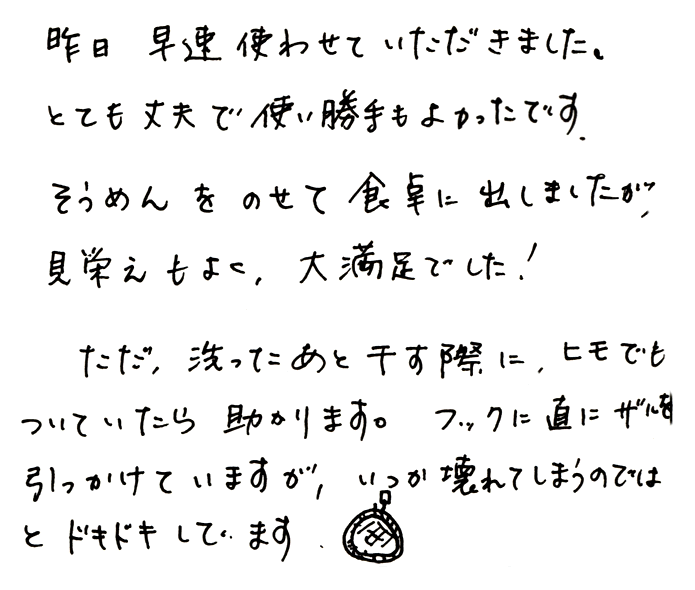 昨日 早速 使わせて いただきました。
とても 丈夫で 使い勝手も よかったです.
そうめん を のせて 食卓に 出しましたが,
見栄えもよく, 大満足でした!
ただ, 洗ったあと 干す際に, ヒモでも
ついていたら 助かります。 フックに 直に ザルを
引っかけていますが, いつか 壊れてしまうのでは
と ドキドキ しています.